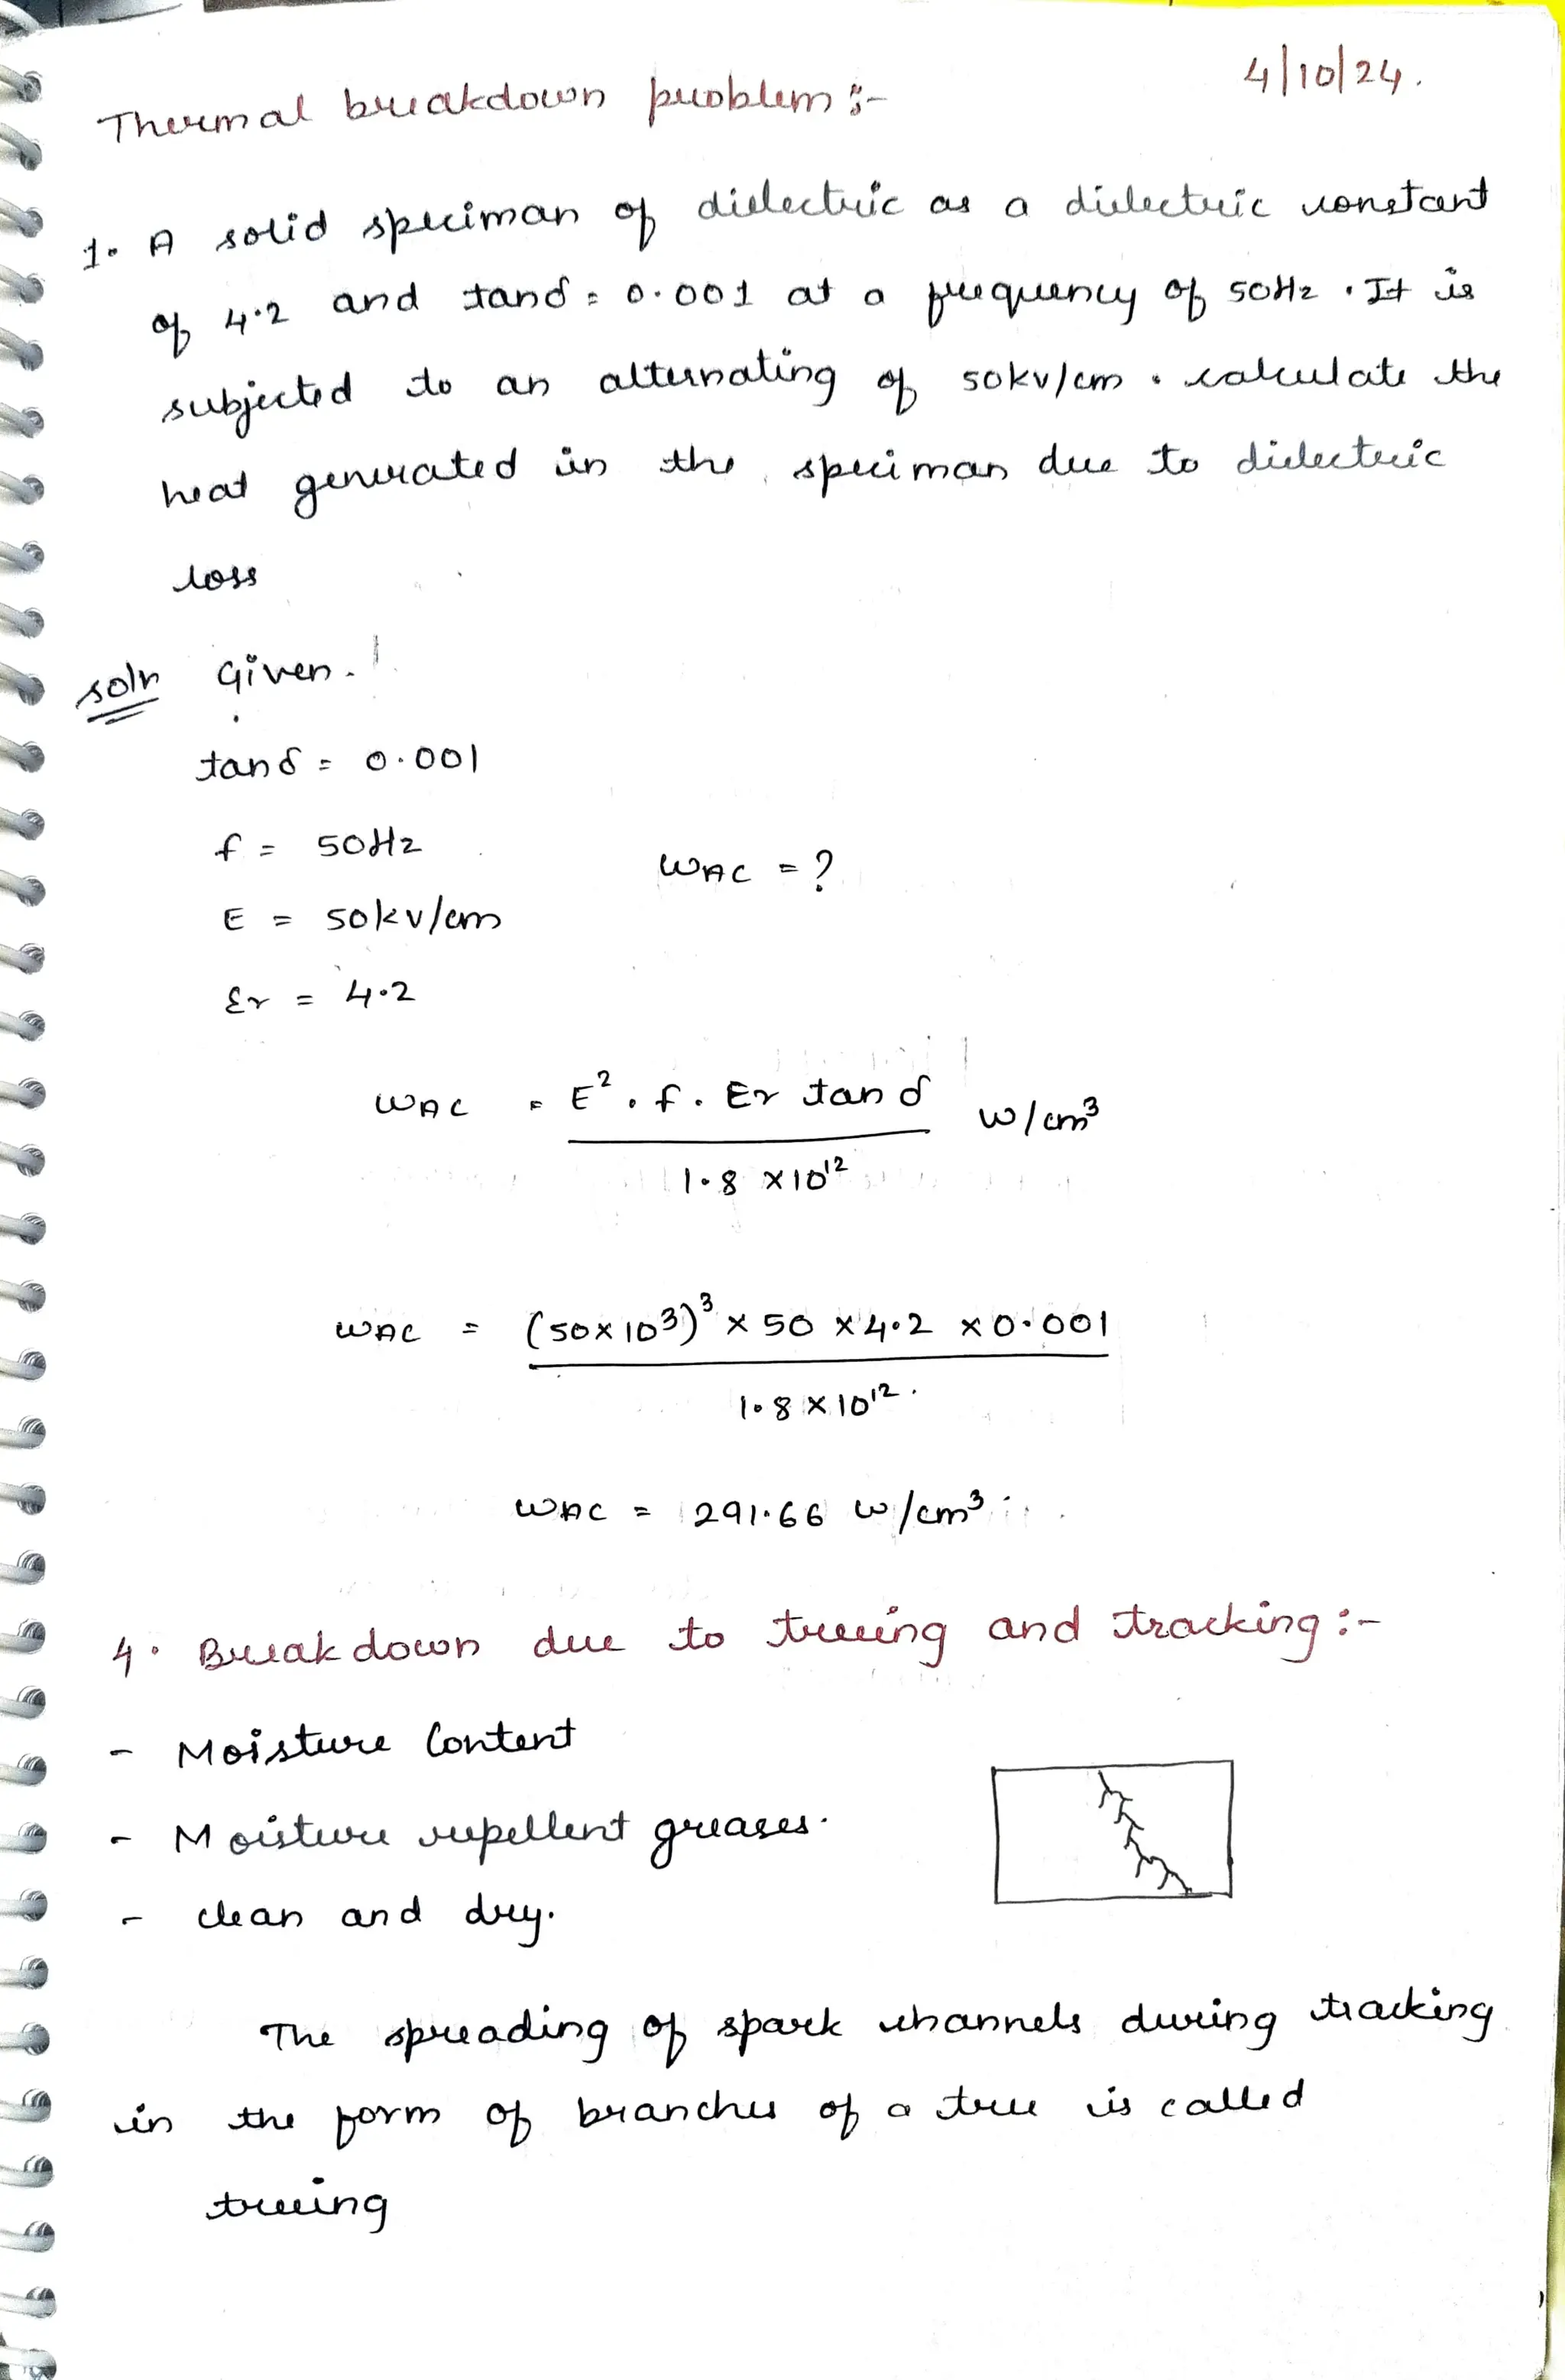 4/10/24.
Thermal breakdown problem :-
1. A solid speciman of dielectric as a dielectric constant
of 4.2 and tanδ = 0.001 at a frequency of 50Hz. It is
subjected to an alternating of 50kv/cm. calculate the
heat generated in the speciman due to dielectric
loss
soln Given.
tanδ = 0.001
f = 50Hz
WAC = ?
E = 50kv/cm
Er = 4.2
WAC = E². f. Er tan δ / 1.8 × 10¹² w/cm³
WAC = (50×10³)³ × 50 × 4.2 × 0.001 / 1.8 × 10¹².
WAC = 291.66 w/cm³
4. Breakdown due to treeing and tracking :-
- Moisture Content
- Moisture repellent greases.
- clean and dry.
The spreading of spark channels during tracking
in the form of branches of a tree is called
treeing